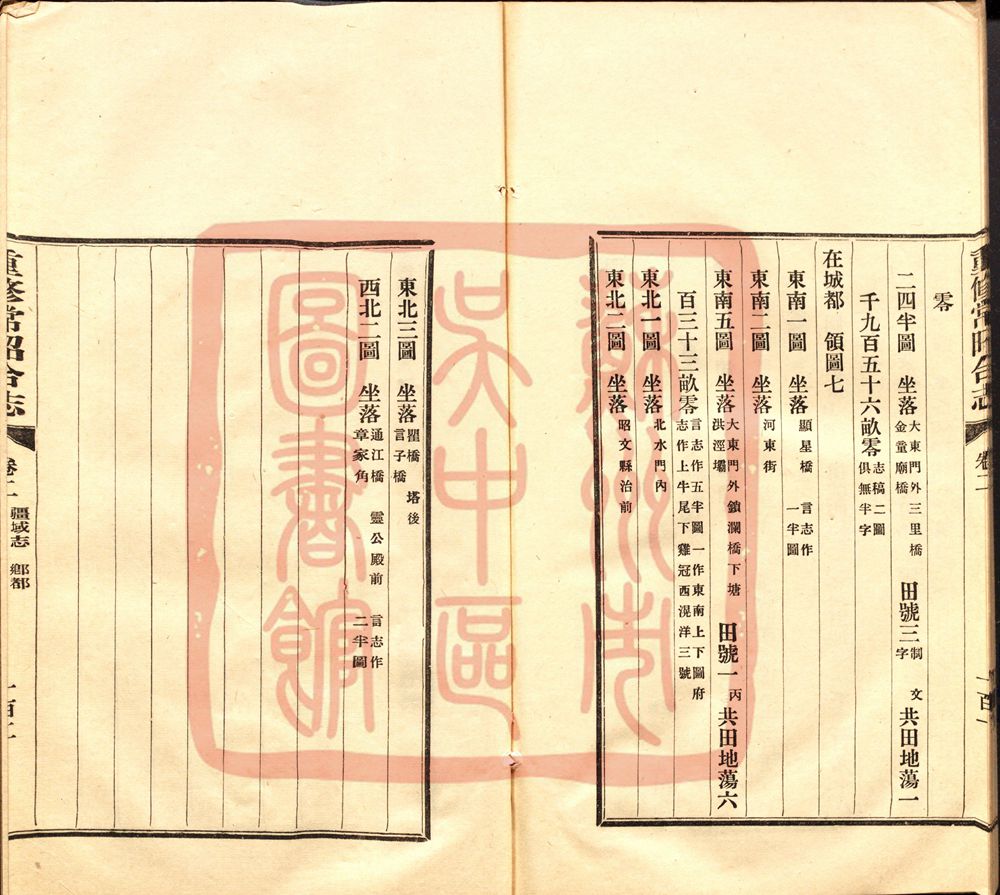 重修常昭合志
卷二
一百一
零
二四半圖 坐落大東門外三里橋金童廟橋 田號三制文字 共田地蕩一
千九百五十六畝零志稿二圖俱無半字
在城都 領圖七
東南一圖 坐落顯星橋 言志作一半圖
東南二圖 坐落河東街
東南五圖 坐落大東門外鎖瀾橋下塘洪涇壩 田號一丙 共田地蕩六
百三十三畝零言志作五半圖一作東南上下圖府志作上牛尾下雞冠西滉洋三號
東北一圖 坐落北水門內
東北二圖 坐落昭文縣治前
東北三圖 坐落瞿橋 塔後言子橋
西北二圖 坐落通江橋 靈公殿前章家角 言志作二半圖
重修常昭合志
卷二 疆域志 鄉都
蘇州市
吳中區
圖書館